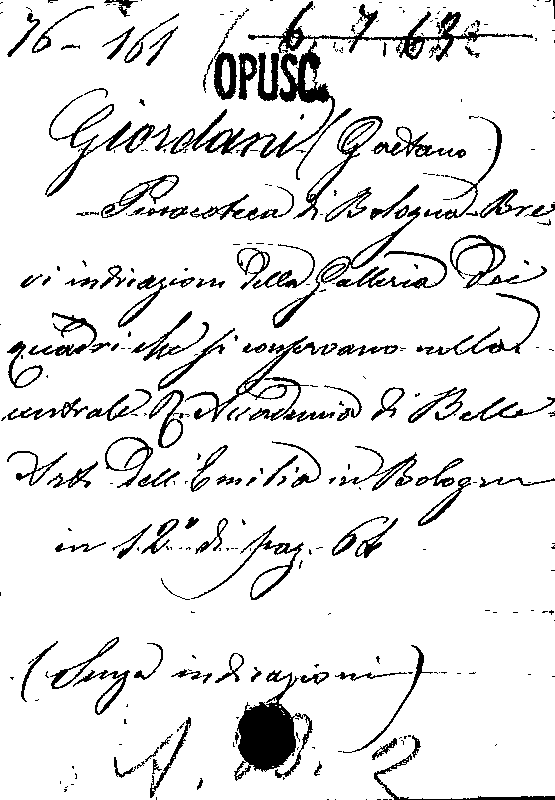 76-161 6.7.63
OPUSC.
Giordani (Gaetano)
- Pinacoteca di Bologna - Bre
vi indicazioni della Galleria Dei
quadri che si conservano nella
centrale Accademia di Belle
Arti dell'Emilia in Bologna
in 12° di pag. 64
(Senza indicazioni)
A. 2